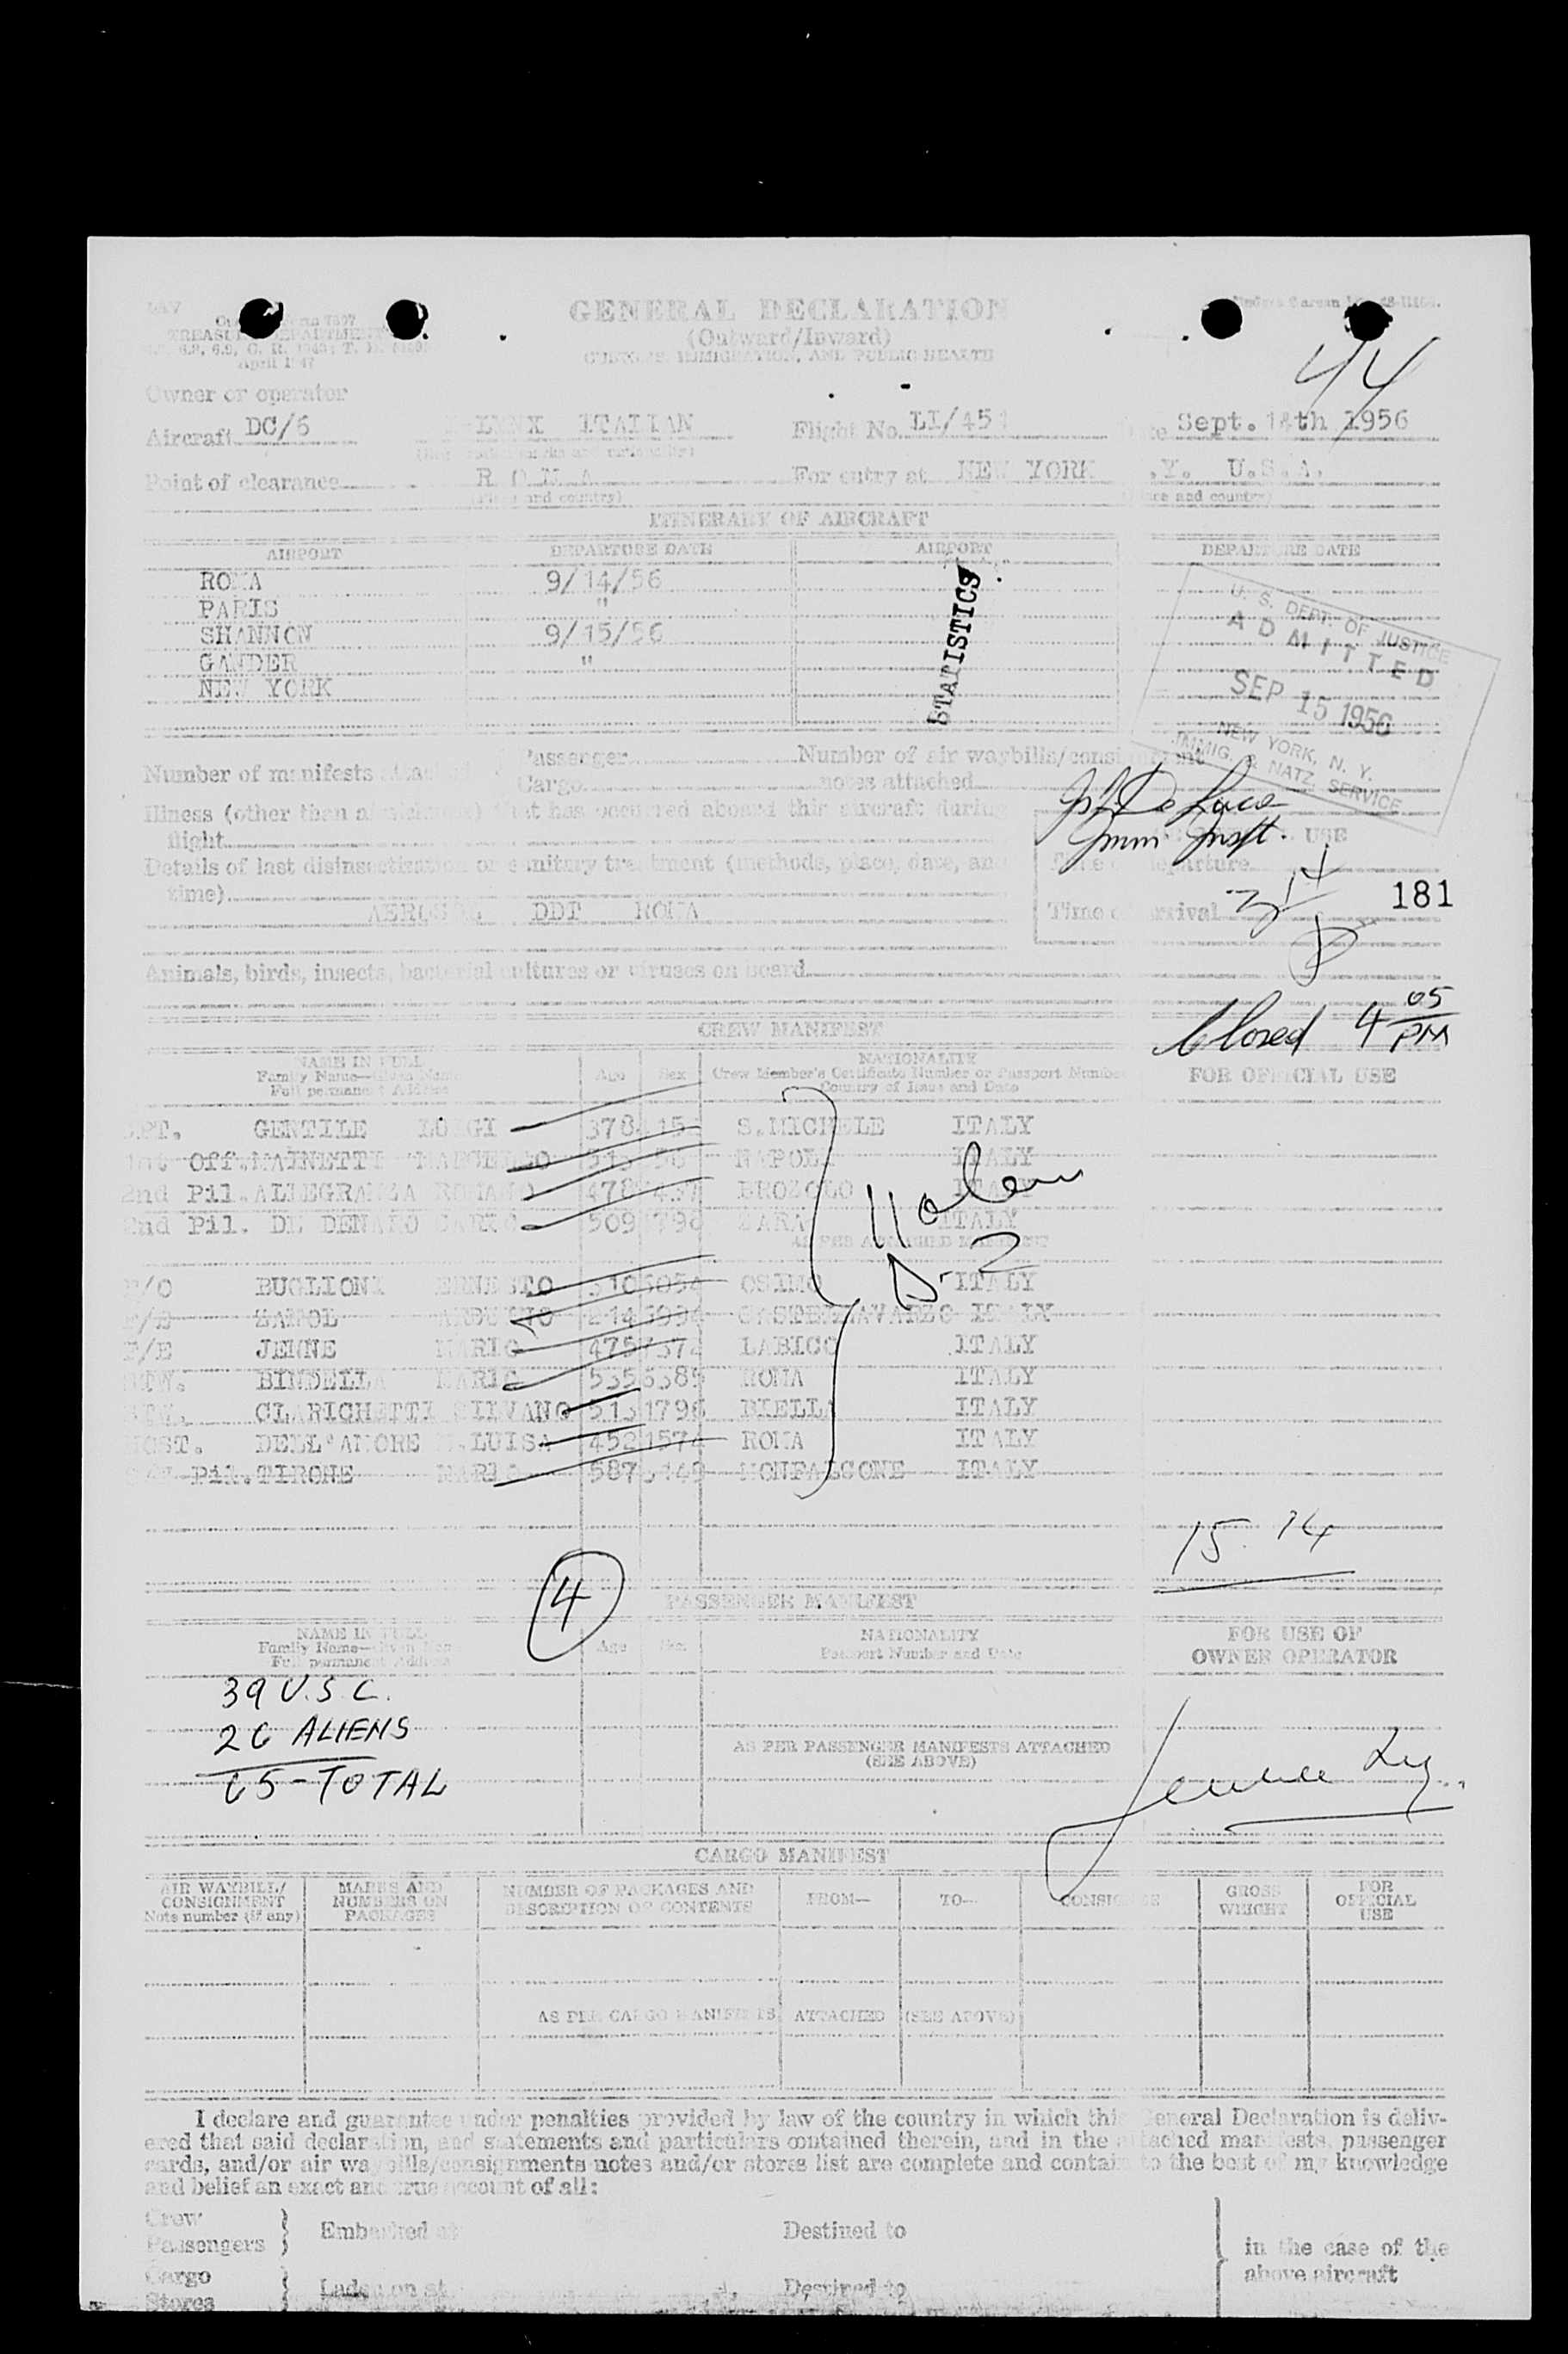 GENERAL DECLARATION
(Outward/Inward)
CUSTOMS, IMMIGRATION, AND PUBLIC HEALTH
TREASURY DEPARTMENT
April 1947
44
Owner or operator
Aircraft DC/6 ITALIAN Flight No. LI/451 Sept. 14th 1956
Point of clearance ROMA For entry at NEW YORK N.Y. U.S.A.
(Place and country) (Place and country)
ITINERARY OF AIRCRAFT
AIRPORT DEPARTURE DATE AIRPORT DEPARTURE DATE
ROMA 9/14/56
PARIS "
SHANNON 9/15/56
GANDER "
NEW YORK
STATISTICS
U. S. DEPT. OF JUSTICE
ADMITTED
SEP 15 1956
NEW YORK, N. Y.
IMMIG. & NATZ. SERVICE
Number of manifests attached Passenger Number of air waybills/consignment
Cargo notes attached
Illness (other than airsickness) that has occurred aboard this aircraft during
flight
De Luca
Imm. Inspt.
USE
Details of last disinsectization or sanitary treatment (methods, place, date, and
time)
Time of departure
AEROSOL DDT ROMA
Time of arrival
181
Animals, birds, insects, bacterial cultures or viruses on board
Closed 4 05 PM
CREW MANIFEST
NAME IN FULL
Family Name—Given Name
Full permanent Address
Age Sex
NATIONALITY
Crew Member's Certificate Number or Passport Number
Country of Issue and Date
FOR OFFICIAL USE
CPT. GENTILE LUIGI S.MICHELE ITALY
1nt Off. MAINETTI MARCELLO NAPOLI ITALY
2nd Pil. ALLEGRANZA ROMANO BROZOLO ITALY
2nd Pil. DE DENARO DARIO ZARA ITALY
AS PER ATTACHED MANIFEST
D-2
R/O BUGLIONI ERNESTO OSIMO ITALY
ITALY
F/E JENNE MARIO LABICO ITALY
STW. BINDELLA MARIO ROMA ITALY
STW. CLARICHETTI SILVANO 5131796 BIELLA ITALY
HOST. DELL'AMORE M.LUISA 4521574 ROMA ITALY
Pil. TIRONE MARIO MONFALCONE ITALY
15 14
4
PASSENGER MANIFEST
NAME IN FULL
Family Name—Given Name
Full permanent Address
Age Sex
NATIONALITY
Passport Number and Date
FOR USE OF
OWNER OPERATOR
39 U.S.C.
26 ALIENS
65-TOTAL
AS PER PASSENGER MANIFESTS ATTACHED
(SEE ABOVE)
CARGO MANIFEST
AIR WAYBILL/
CONSIGNMENT
Note number (if any)
MARKS AND
NUMBERS ON
PACKAGES
NUMBER OF PACKAGES AND
DESCRIPTION OF CONTENTS
FROM—
TO—
CONSIGNEE
GROSS
WEIGHT
FOR
OFFICIAL
USE
AS PER CARGO MANIFESTS ATTACHED (SEE ABOVE)
I declare and guarantee under penalties provided by law of the country in which this General Declaration is deliv-
ered that said declaration, and statements and particulars contained therein, and in the attached manifests, passenger
cards, and/or air waybills/consignments notes and/or stores list are complete and contain to the best of my knowledge
and belief an exact and true account of all:
Crew
Passengers } Embarked at Destined to
Cargo
Stores } Laden on at Destined to
in the case of the
above aircraft